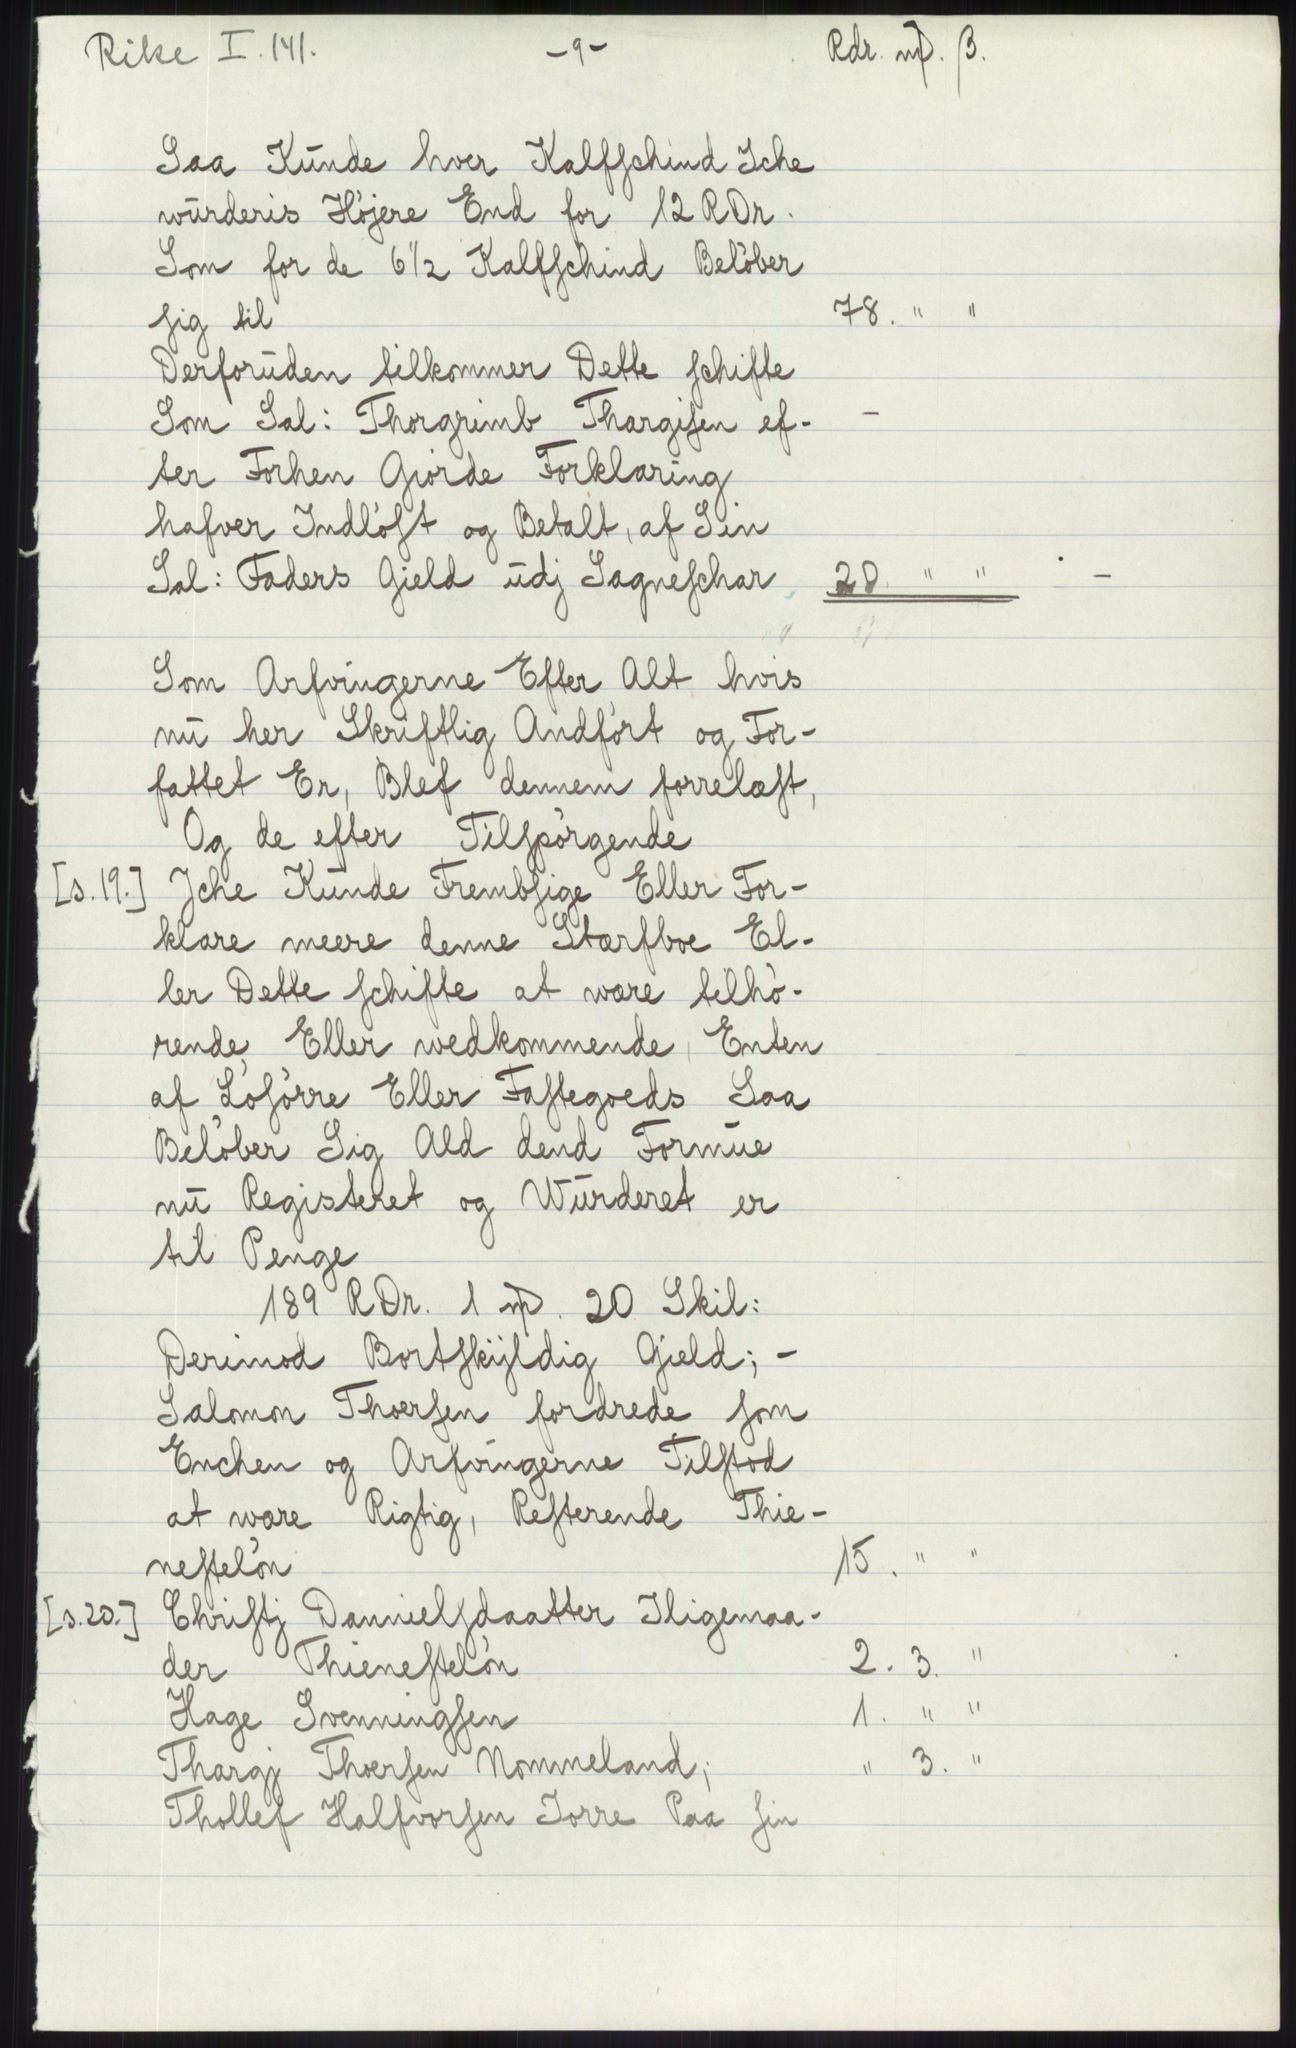 Rike I. 141. -9- Rdr. mƿ. β.
Saa Kunde hver Kalfschind Iche
wurderis Højere End for 12 RDr.
Som for de 6 1/2 Kalfschind Beløber
sig til 78. " "
Derforuden tilkommer Dette schifte
Som Sal: Thorgrimb Thargisen ef- -
ter Forhen Giorde Forklaring
hafver Indløst og Betalt, af Sin
Sal: Faders Gield udj Sagneschar 20. " " -
Som Arfvingerne Efter Alt hvis
nu her Skriftlig Andført og For-
fattet Er, Blef dennem forrelæst,
Og de efter Tilspørgende
[s.19.] Iche Kunde Frembsige Eller For-
klare meere denne Stærfboe El-
ler Dette schifte at være tilhø-
rende Eller wedkommende, Enten
af Løsørre Eller Fastegoeds Saa
Beløber Sig Ald dend Formue
nu Registeret og Wurderet er
til Penge
189 RDr. 1 mƿ. 20 Skil:
Derimod Bortskyldig Gield; -
Salomon Thoersen fordrede som
Enchen og Arfvingerne Tilstod
at wære Rigtig, Resterende Thie-
nesteløn 15. " "
[s.20.] Christj Dannielsdaatter Iligemaa-
der Thienesteløn 2. 3. "
Hage Svenningsen 1. " "
Thargj Thoersen Nommeland; " 3. "
Thollef Halfvorsen Jorre Paa sin